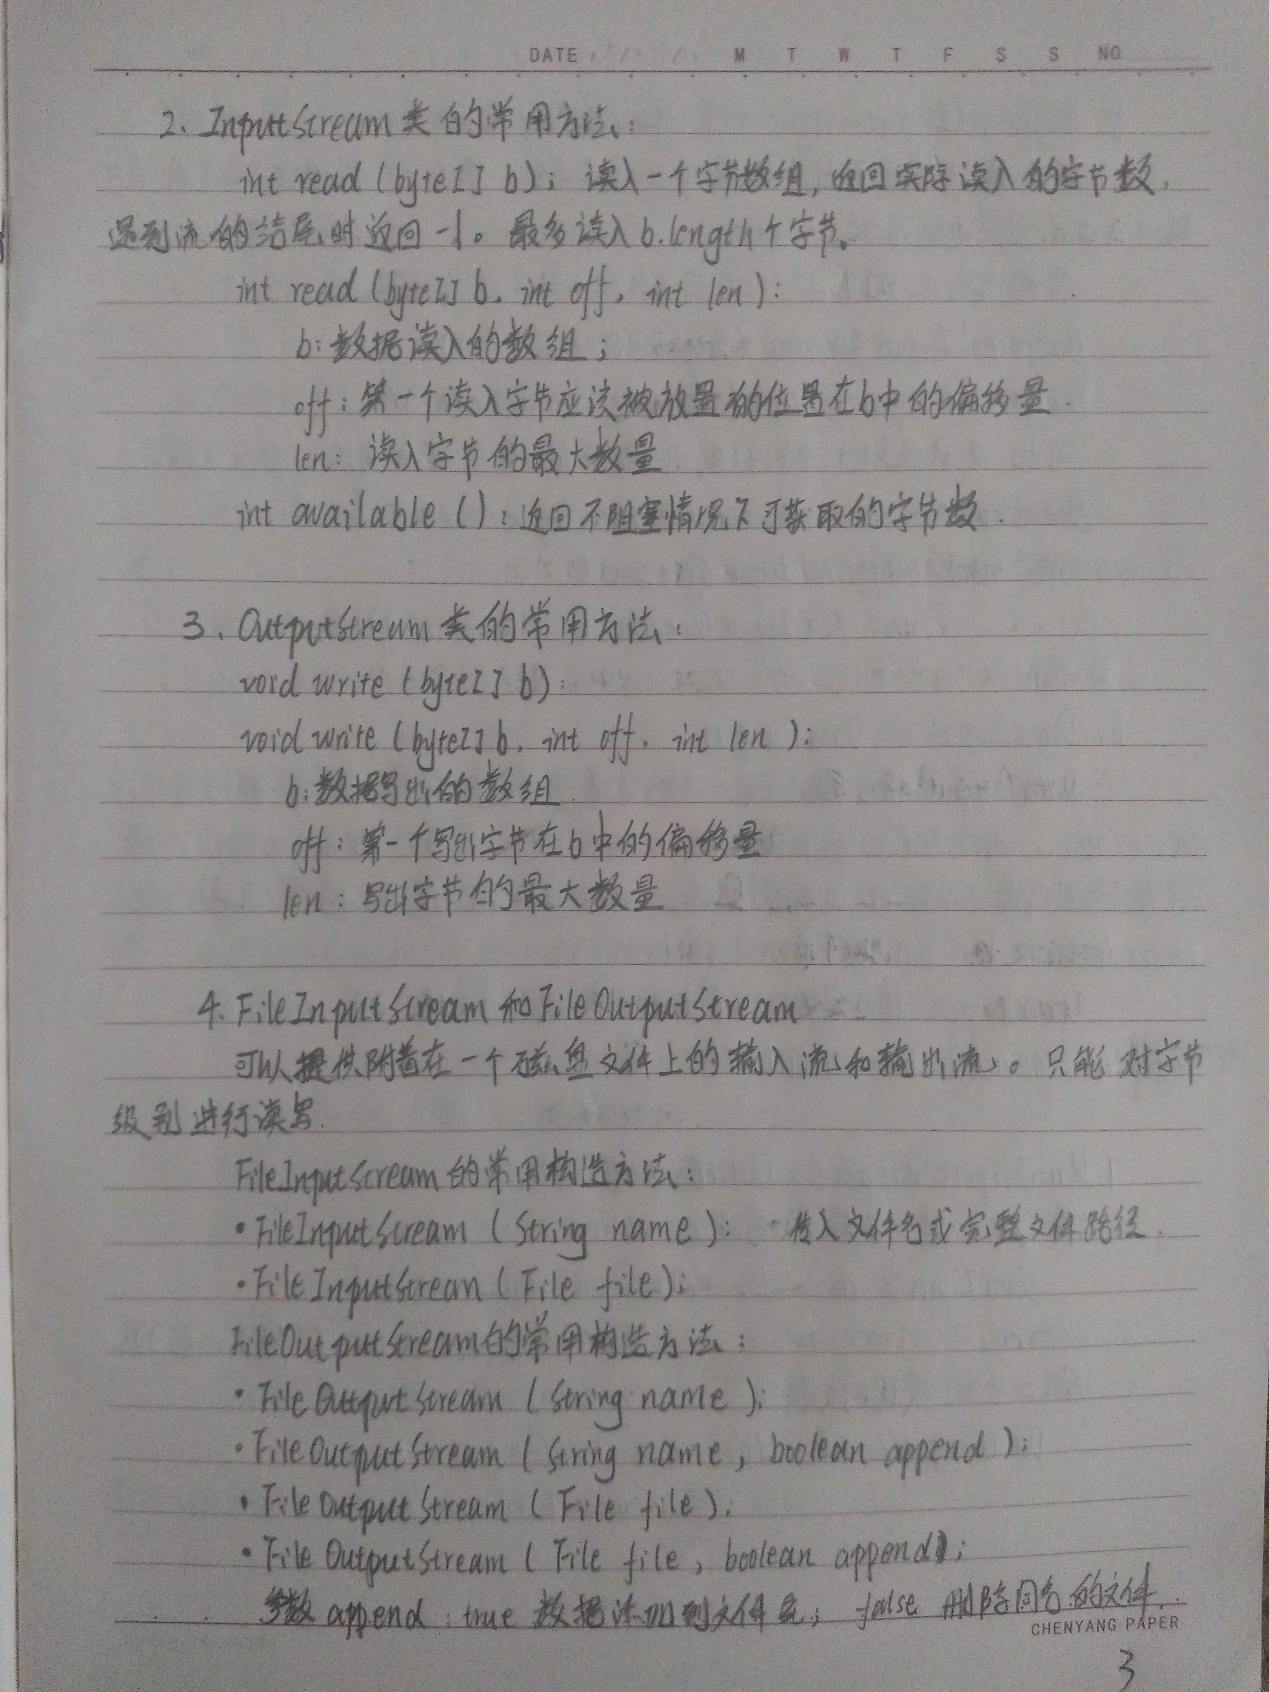 DATE / / M T W T F S S NO.
2. InputStream 类的常用方法:
int read (byte[] b); 读入一个字节数组, 返回实际读入的字节数,
遇到流的结尾时返回 -1。最多读入 b.length个字节。
int read (byte[] b, int off, int len):
b: 数据读入的数组;
off: 第一个读入字节应该被放置的位置在b中的偏移量.
len: 读入字节的最大数量
int available (): 返回不阻塞情况下可获取的字节数.
3. OutputStream 类的常用方法:
void write (byte[] b);
void write (byte[] b, int off, int len);
b: 数据写出的数组.
off: 第一个写出字节在b中的偏移量
len: 写出字节的最大数量
4. FileInputStream 和 FileOutputStream
可以提供附着在一个磁盘文件上的输入流和输出流。只能对字节
级别进行读写.
FileInputStream 的常用构造方法:
• FileInputStream (String name): 传入文件名或完整文件路径.
• FileInputStream (File file);
FileOutputStream的常用构造方法:
• FileOutputStream (String name);
• FileOutputStream (String name, boolean append);
• FileOutputStream (File file);
• FileOutputStream (File file, boolean append);
参数 append: true 数据添加到文件尾; false 删除同名的文件.
CHENYANG PAPER
3